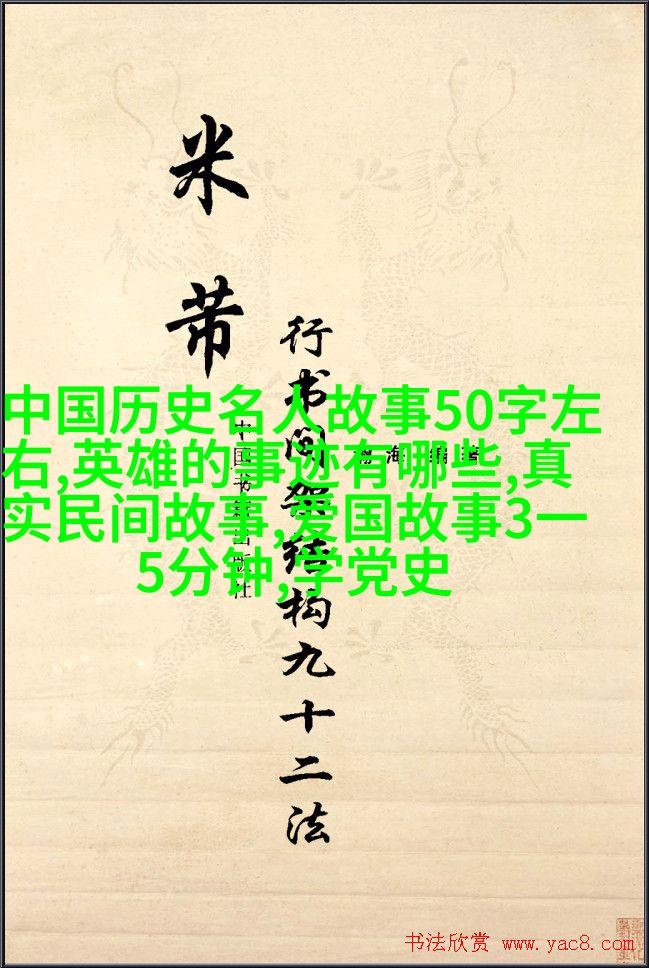 米芾
行书间架结构九十二法
中国书籍出版社
中国历史名人故事50字左
右,英雄的事迹有哪些,真
实民间故事,爱国故事3一
5分钟,学党史
书法欣赏 www.yac8.com